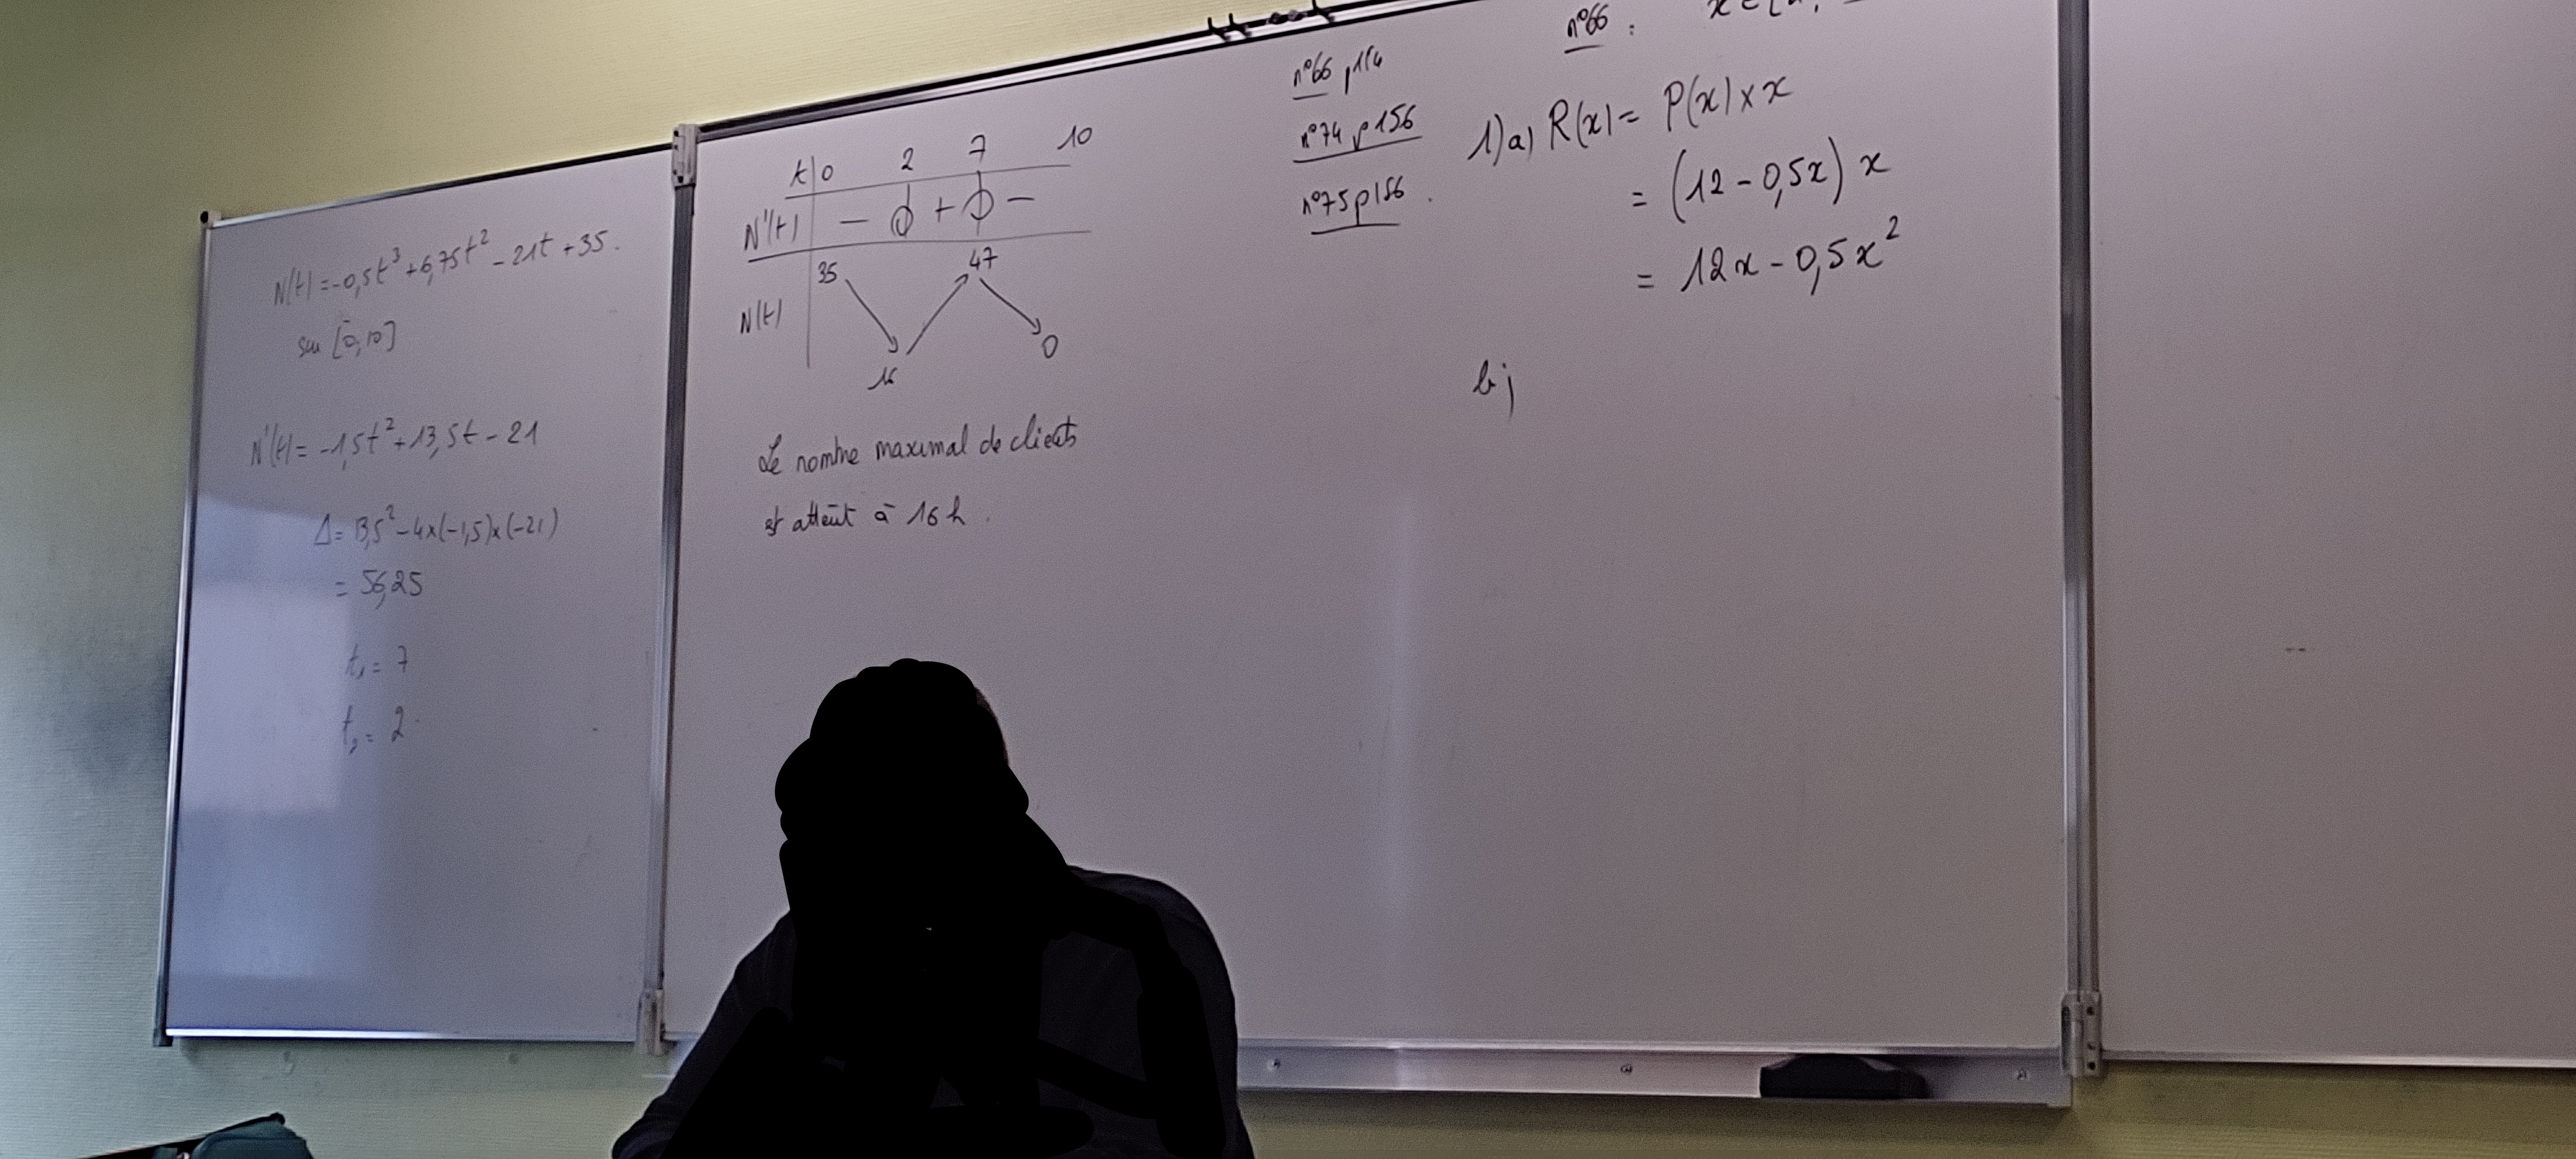 N(t) = -0,5t³ + 6,75t² - 21t + 35.
sur [0,10]
N'(t) = -1,5t² + 13,5t - 21
Δ = 13,5² - 4×(-1,5)×(-21)
= 56,25
t₁ = 7
t₂ = 2
t 0 2 7 10
N'(t) - 0 + 0 -
35 47
N(t)
0
16
Le nombre maximal de clients
est atteint à 16 h.
n°66 p
n°74 p156
n°75 p156.
n°66 :
1) a) R(x) = P(x) × x
= (12 - 0,5x) x
= 12x - 0,5x²
b)